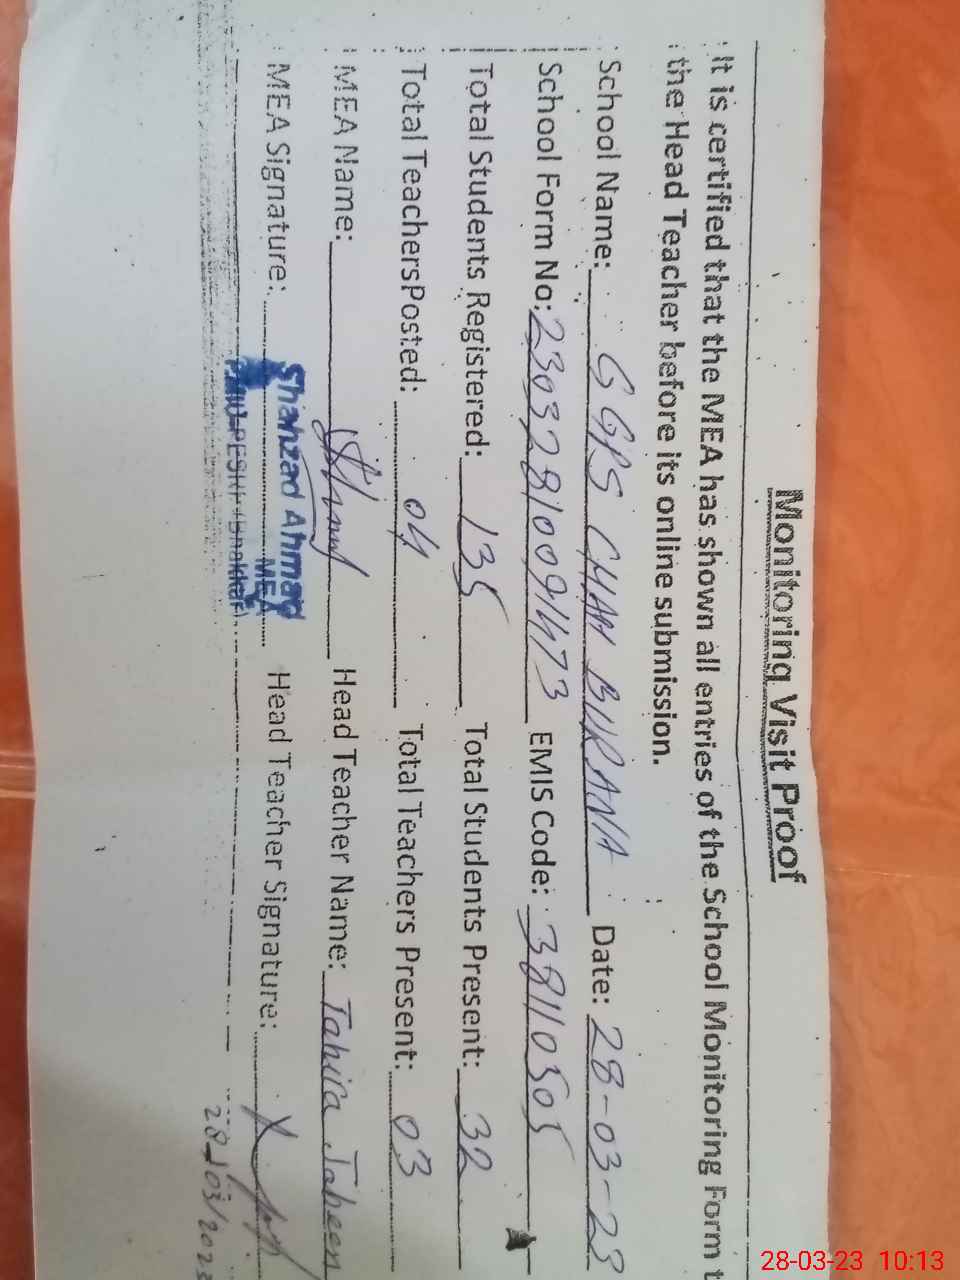 Monitoring Visit Proof
It is certified that the MEA has shown all entries of the School Monitoring Form t
the Head Teacher before its online submission.
School Name: GGPS CHAH BURANA Date: 28-03-23
School Form No: 23032810091473 EMIS Code: 38110505
Total Students Registered: 135 Total Students Present: 32
Total Teachers Posted: 04 Total Teachers Present: 03
MEA Name: Head Teacher Name: Tahira Jabeen
MEA Signature: Head Teacher Signature:
Shahzad Ahmad
MEA
(Bhakkar)
28/03/2023
28-03-23 10:13